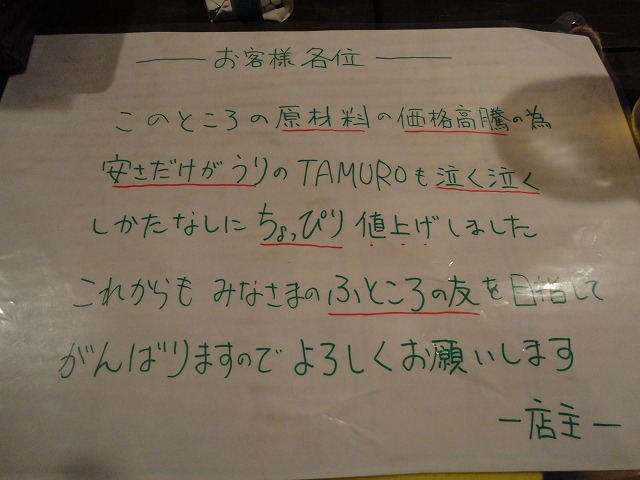 ── お客様各位 ──
このところの原材料の価格高騰の為
安さだけがうりのTAMUROも泣く泣く
しかたなしにちょっぴり値上げしました
これからもみなさまのふところの友を目指して
がんばりますのでよろしくお願いします
ー店主ー